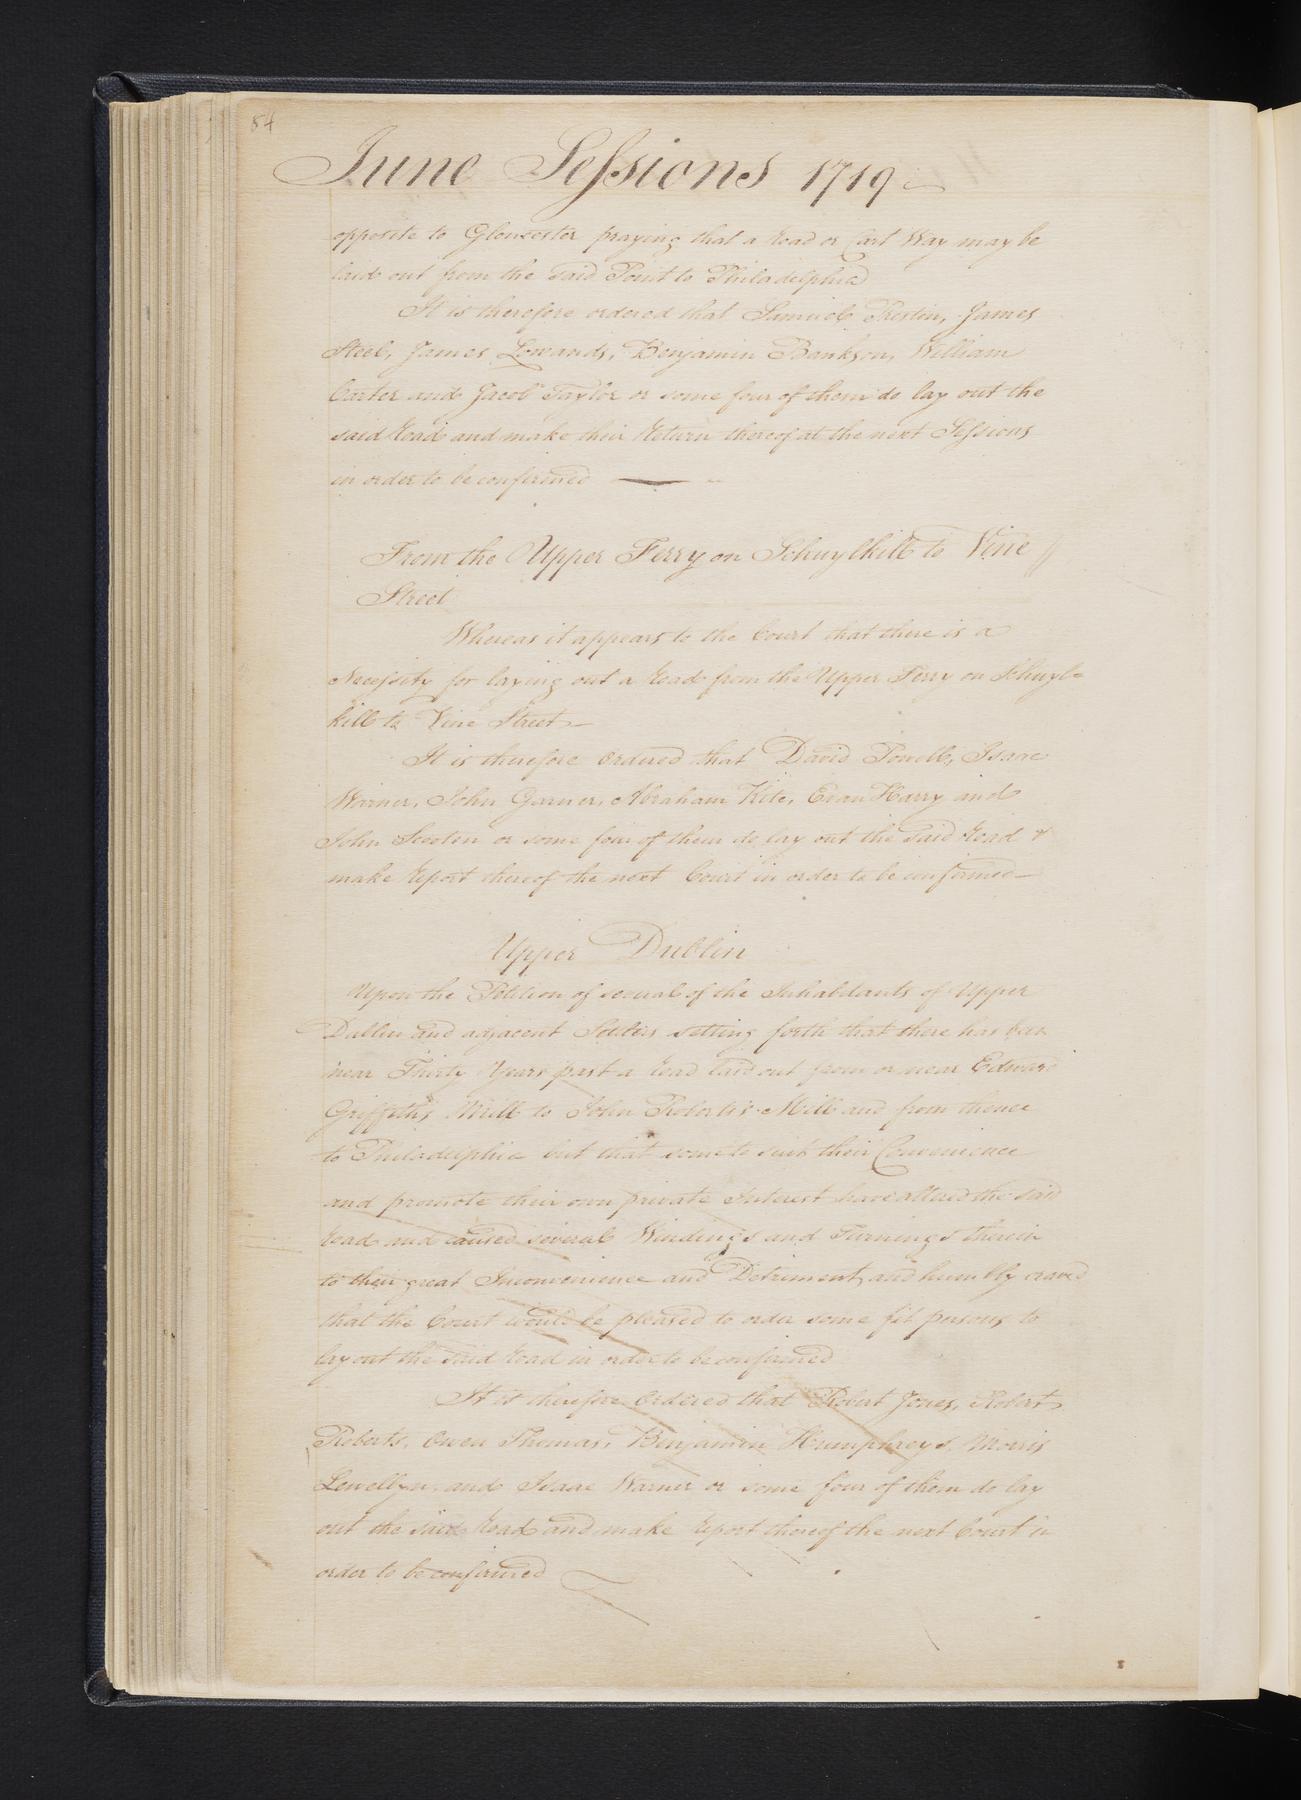 84
June Sessions 1719
opposite to Gloucester praying that a Road or Cart Way may be
laid out from the said Point to Philadelphia
It is therefore ordered that Samuel Preston, James
Steel, James Lowands, Benjamin Bankson, William
Carter and Jacob Taylor or some four of them do lay out the
said Road and make their Return thereof at the next Sessions
in order to be confirmed
From the Upper Ferry on Schuylkill to Vine
Street
Whereas it appears to the Court that there is a
Necessity for laying out a Road from the Upper Ferry on Schuyl=
kill to Vine Street
It is therefore Ordered that David Powell, Isaac
Warner, John Garner, Abraham Kite, Evan Harry and
John Scooten or some four of them do lay out the said Road &
make Report thereof the next Court in order to be confirmed
Upper Dublin
Upon the Petition of several of the Inhabitants of Upper
Dublin and adjacent Settlers setting forth that there has been
near Thirty Years past a Road laid out from or near Edward
Griffith's Mill to John Roberts's Mill and from thence
to Philadelphia but that some to suit their Convenience
and promote their own private Interest have altered the said
Road and caused several Windings and Turnings therein
to their great Inconvenience and Detriment and humbly craved
that the Court would be pleased to order some fit persons to
lay out the said Road in order to be confirmed
It is therefore Ordered that Robert Jones, Robert
Roberts, Owen Thomas, Benjamin Humphreys, Morris
Lewellyn and Isaac Warner or some four of them do lay
out the said Road and make Report thereof the next Court in
order to be confirmed